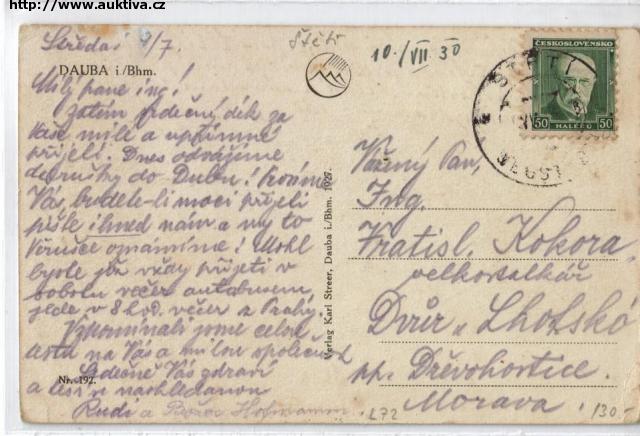 http://www.auktiva.cz
Středa 9/7.
Štětí
10./VII 30
DAUBA i./Bhm.
ČESKOSLOVENSKO
50 HALÉŘŮ 50
Milý pane ing!
Zatím srdečný dík za
Vaše milé a upřímné
přijetí. Dnes odvážíme
do Dubu! Prosíme
Vás, budete-li moci přijeti
pište ihned nám a my to
Věrušce oznámíme! Mohl
byste již vždy přijeti v
sobotu večer autobusem,
jede v 8 hod. večer z Prahy.
Vzpomínali jsme celou
cestu na Vás a milou společnost
Srdečně Vás zdraví
a těší se nashledanou
Rudi a Hofmann
Nr. 192.
Verlag Karl Streer, Dauba i./Bhm. 1927.
Vážený Pan,
Ing.
Vratisl. Kokora,
velkostatkář
Dvůr u Lhotsko
pp. Dřevohostice.
Morava.
L72
130.-